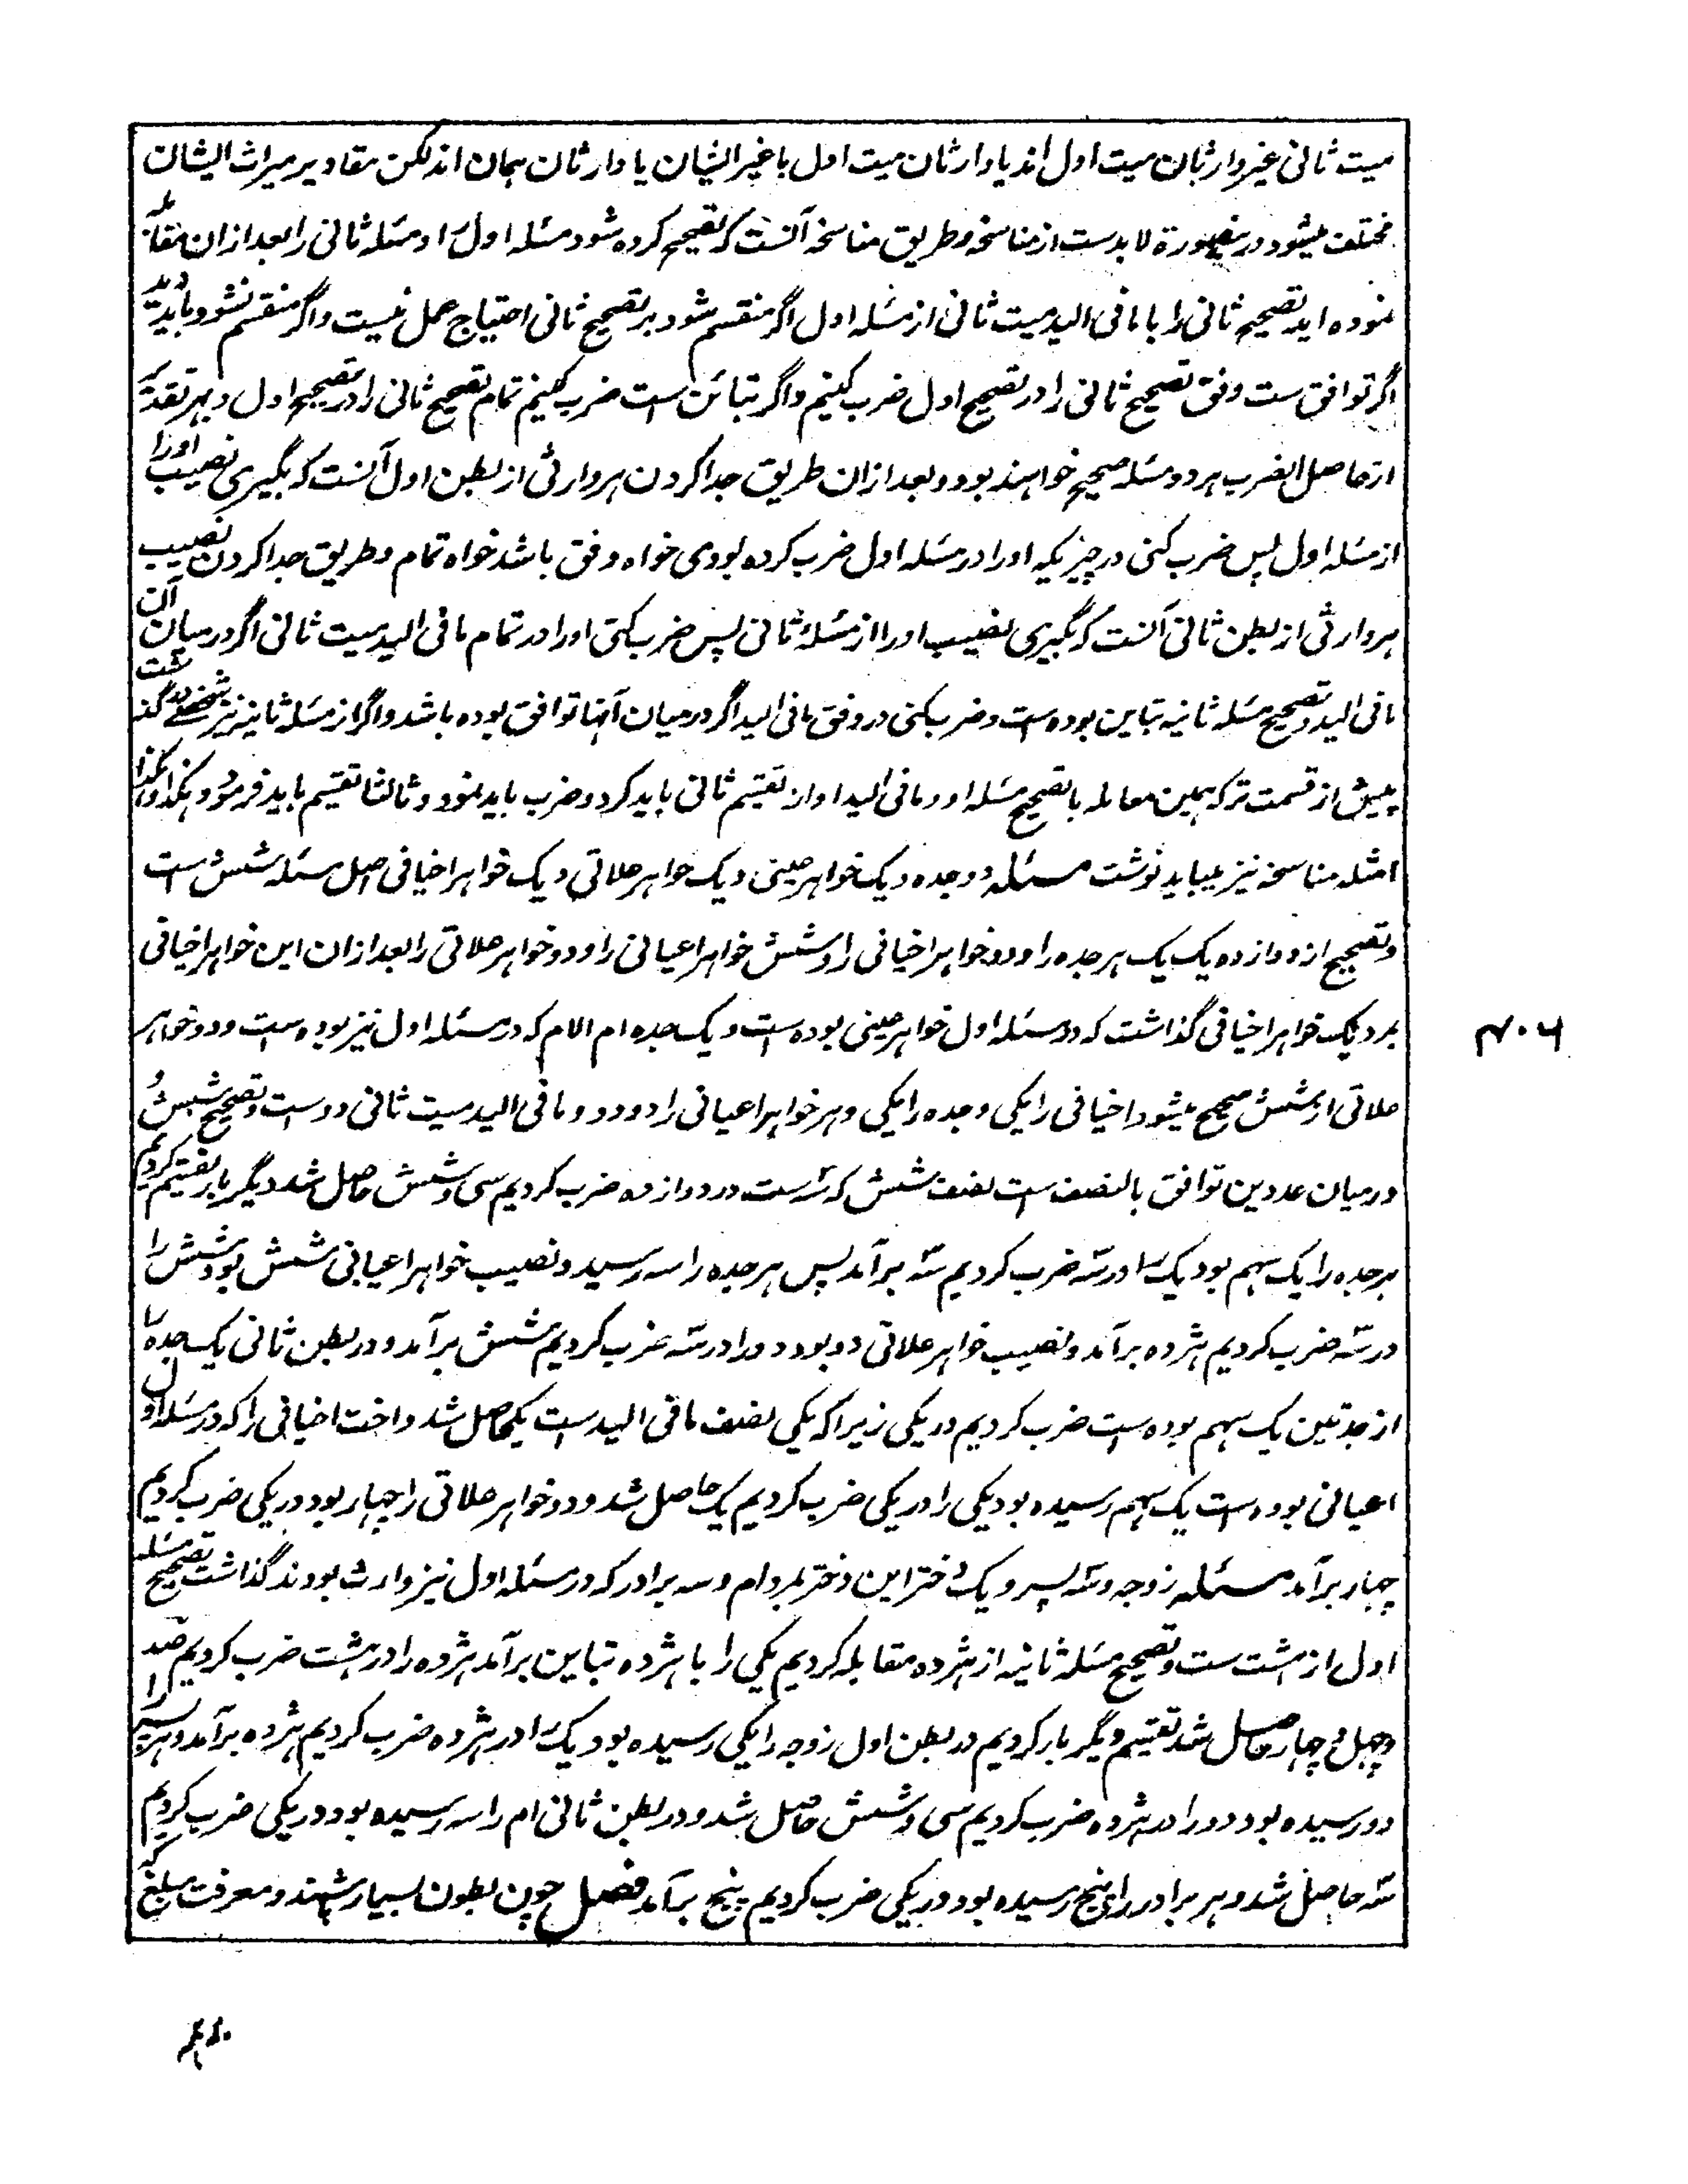 میت ثانی غیر وارثان میت اول اند یا وارثان میت اول با غیر ایشان یا وارثان ہمان اند لکن مقادیر میراث ایشان
مختلف میشود درینصورة لابدست از مناسخہ وطریق مناسخہ آنست کہ تصحیح کردہ شود مسئلہ اول را و مسئلہ ثانی را بعد ازان مقابلہ
نمودہ اید تصحیح ثانی را با مافی الید میت ثانی از مسئلہ اول اگر منقسم شود بر تصحیح ثانی احتیاج عمل نیست واگر منقسم نشود باید دید
اگر توافق ست وفق تصحیح ثانی را در تصحیح اول ضرب کنیم واگر تبائن ست ضرب کنیم تمام تصحیح ثانی را در تصحیح اول وبہر تقدیر
از حاصل الضرب ہردو مسئلہ صحیح خواہند بود وبعد ازان طریق جدا کردن ہر وارثی از بطن اول آنست کہ بگیری نصیب اورا
از مسئلہ اول پس ضرب کنی در چیزیکہ اورا در مسئلہ اول ضرب کردہ بودی خواہ وفق باشد خواہ تمام وطریق جدا کردن نصیب
ہر وارثی از بطن ثانی آنست کہ بگیری نصیب اورا از مسئلہ ثانی پس ضرب کنی اورا در تمام مافی الید میت ثانی اگر درمیان آن
مافی الید وتصحیح مسئلہ ثانیہ تباین بودہ ست وضرب کنی در وفق مافی الید اگر درمیان آنہا توافق بودہ باشد واگر از مسئلہ ثانیہ نیز شخصے درگذشت
پیش از قسمت ترکہ ہمین معاملہ با تصحیح مسئلہ او ومافی الید او از تقسیم ثانی باید کرد وضرب باید نمود وثالثا تقسیم باید فرمود وہکذا وہکذا
امثلہ مناسخہ نیز میباید نوشت مسئلہ دو جدہ ویک خواہر عینی ویک خواہر علاتی ویک خواہر اخیافی اصل مسئلہ شش ست
وتصحیح از دوازدہ یک یک ہر جدہ را ودو خواہر اخیافی را وشش خواہر اعیانی را ودو خواہر علاتی را بعد ازان این خواہر اخیافی
بمرد ویک خواہر اخیافی گذاشت کہ در مسئلہ اول خواہر عینی بودہ ست ویک جدہ ام الام کہ در مسئلہ اول نیز بودہ ست ودو خواہر
علاتی از شش صحیح میشود اخیافی را یکی وجدہ را یکی وہر خواہر اعیانی را دو دو ومافی الید میت ثانی دو ست وتصحیح شش و
درمیان عددین توافق بالنصف ست نصف شش کہ سہ ست در دوازدہ ضرب کردیم سی وشش حاصل شد دیگر بار تقسیم کردیم
ہر جدہ را یک سہم بود یک را در سہ ضرب کردیم سہ برآمد پس ہر جدہ را سہ رسید ونصیب خواہر اعیانی شش بود شش را
در سہ ضرب کردیم ہژدہ برآمد ونصیب خواہر علاتی دو بود دو را در سہ ضرب کردیم شش برآمد ودر بطن ثانی یک جدہ را
از جدتین یک سہم بودہ ست ضرب کردیم در یکی زیراکہ یکی نصف مافی الید ست یک حاصل شد واخت اخیافی را کہ در مسئلہ اول
اعیانی بودہ ست یک سہم رسیدہ بود یکی را در یکی ضرب کردیم یک حاصل شد ودو خواہر علاتی را چہار بود در یکی ضرب کردیم
چہار برآمد مسئلہ زوجہ وسہ پسر ویک دختر این دختر بمرد ام وسہ برادر کہ در مسئلہ اول نیز وارث بودند گذاشت تصحیح مسئلہ
اول از ہشت ست وتصحیح مسئلہ ثانیہ از ہژدہ مقابلہ کردیم یکی را با ہژدہ تباین برآمد ہژدہ را در ہشت ضرب کردیم صد
وچہل وچہار حاصل شد تقسیم دیگر بار کردیم در بطن اول زوجہ را یکی رسیدہ بود یک را در ہژدہ ضرب کردیم ہژدہ برآمد وہر پسر را
دو رسیدہ بود دو را در ہژدہ ضرب کردیم سی وشش حاصل شد ودر بطن ثانی ام را سہ رسیدہ بود در یکی ضرب کردیم
سہ حاصل شد وہر برادر را پنج رسیدہ بود در یکی ضرب کردیم پنج برآمد فصل چون بطون بسیار شوند ومعرفت مبلغ کہ